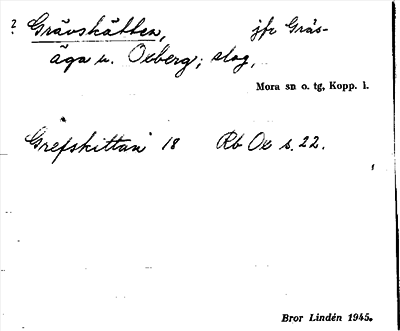 ? Grävskätten, jfr Gräs-
äga u. Oxberg; slog.
Mora sn o. tg, Kopp. l.
Grefskittan 18 Rb Ox s. 22.
Bror Lindén 1945.